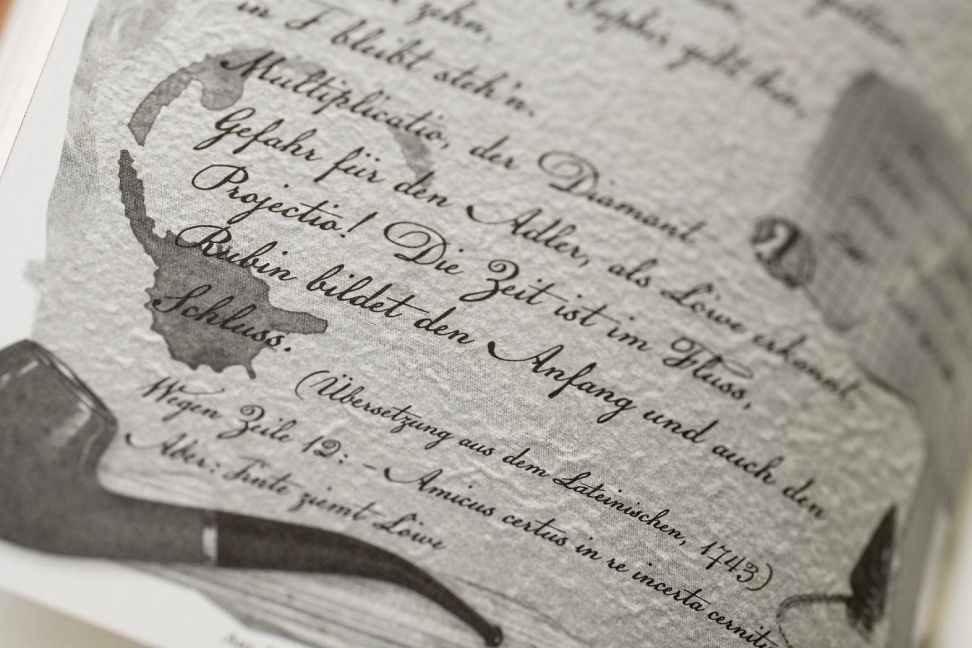 zehn,
in F bleibt steh'n.
Multiplicatio, der Diamant -
Gefahr für den Adler, als Löwe erkannt
Projectio! Die Zeit ist im Fluss,
Rubin bildet den Anfang und auch den
Schluss.
(Übersetzung aus dem Lateinischen, 1743)
Wegen Zeile 12: - Amicus certus in re incerta cernitu
Aber: Tinte ziemt Löwe